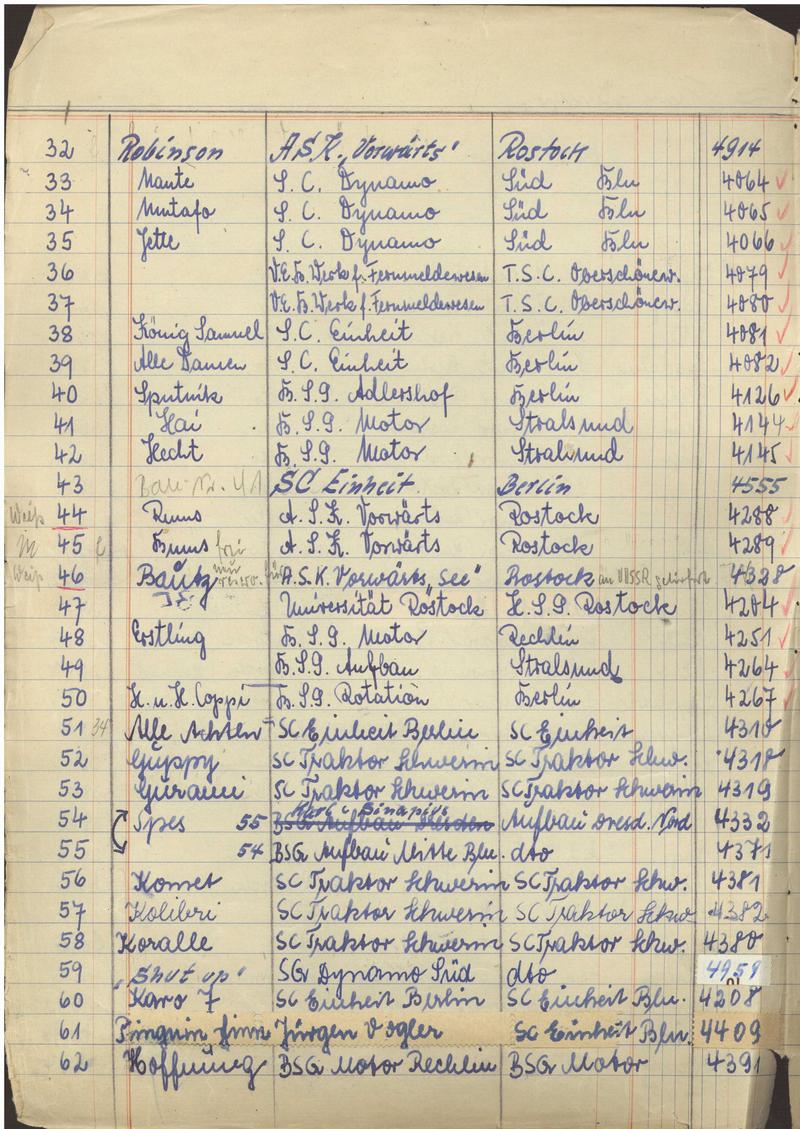 32 Robinson A.S.K. „Vorwärts' Rostock 4914
33 Mante S. C. Dynamo Süd Bln 4064
34 Mutafo S. C. Dynamo Süd Bln 4065
35 Jette S. C. Dynamo Süd Bln 4066
36 V.E.B. Werk f. Fernmeldewesen T.S.C. Oberschönew. 4079
37 V.E.B. Werk f. Fernmeldewesen T.S.C. Oberschönew. 4080
38 König Samuel S. C. Einheit Berlin 4081
39 Alle Damen S. C. Einheit Berlin 4082
40 Sputnik B. S. G. Adlershof Berlin 4126
41 Hai B. S. G. Motor Stralsund 4144
42 Hecht B. S. G. Motor Stralsund 4145
43 Bau-Nr. 41 SC Einheit Berlin 4555
Weiß 44 Rums A. S. K. Vorwärts Rostock 4288
45 Bums frei A. S. K. Vorwärts Rostock 4289
Weiß 46 Bautz nur für A.S.K. Vorwärts „See" Rostock an UDSSR geliefert 4328
47 Universität Rostock H.S.G. Rostock 4204
48 Erstling B. S. G. Motor Rechlin 4251
49 B. S. G. Aufbau Stralsund 4264
50 H. u. H. Coppi B. S. G. Rotation Berlin 4267
51 34 Alle Achten SC Einheit Berlin SC Einheit 4310
52 Guppy SC Traktor Schwerin SC Traktor Schw. 4318
53 Gurami SC Traktor Schwerin SC Traktor Schwerin 4319
54 Spes 55 BSG Aufbau Dresden Aufbau Dresd. Nord 4332
55 54 BSG Aufbau Mitte Bln. dto 4371
56 Komet SC Traktor Schwerin SC Traktor Schw. 4381
57 Kolibri SC Traktor Schwerin SC Traktor Schw 4382
58 Koralle SC Traktor Schwerin SC Traktor Schw. 4380
59 „Shut up" SG Dynamo Süd dto 4959
60 Karo 7 SC Einheit Berlin SC Einheit Bln. 4208
61 Pinguin Finn Jürgen Vogler SC Einheit Bln. 4409
62 Hoffnung BSG Motor Rechlin BSG Motor 4391